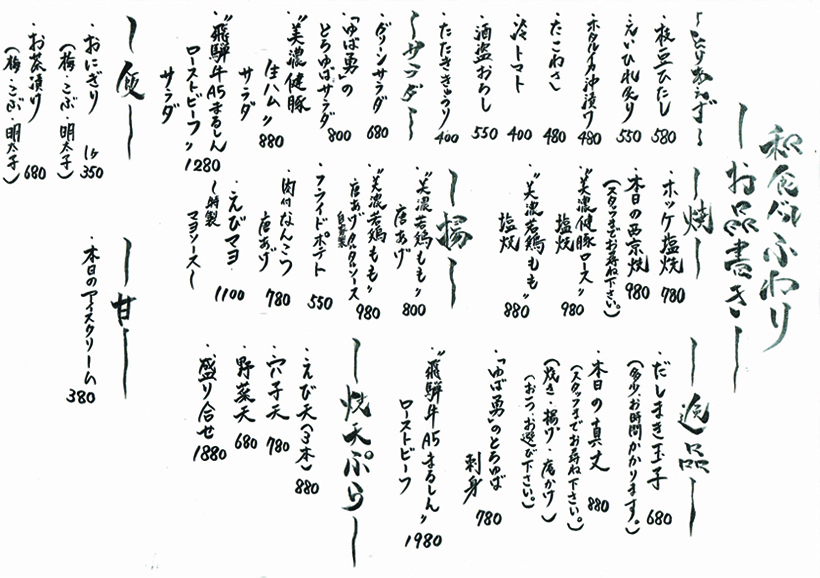 和食べふわり
お品書き
とりあえず
・枝豆ひたし 580
・えいひれ炙り 550
・ホタルイカ沖漬け 480
・たこわさ 480
・冷トマト 400
・酒盗おろし 550
・たたききゅうり 400
サラダ
・グリーンサラダ 680
・「ゆば勇」の
とろゆばサラダ 800
・"美濃健豚
生ハム" 880
サラダ
・"飛騨牛A5まるしん
ローストビーフ" 1280
サラダ
焼
・ホッケ塩焼 780
・本日の西京焼 980
(スタッフまでお尋ね下さい。)
・"美濃健豚ロース"
塩焼 980
・"美濃若鶏もも"
塩焼 880
揚
・"美濃若鶏もも"
唐あげ 800
・"美濃若鶏もも"
唐あげタルタルソース 980
自家製
・フライドポテト 550
・肉付なんこつ
唐あげ 780
・えびマヨ 1100
〜特製
マヨソース〜
逸品
・だしまき玉子 680
(多少、お時間かかります。)
・本日の真丈 880
(スタッフまでお尋ね下さい。)
(焼き・揚げ・庵かけ)
(お一つお選び下さい。)
・「ゆば勇」のとろゆば
刺身 780
・"飛騨牛A5まるしん"
ローストビーフ 1980
焼天ぷら
・えび天(3本) 880
・穴子天 780
・野菜天 680
・盛り合せ 1880
食
・おにぎり 1ヶ 350
(梅・こぶ・明太子)
・お茶漬け 680
(梅・こぶ・明太子)
甘
・本日のアイスクリーム 380